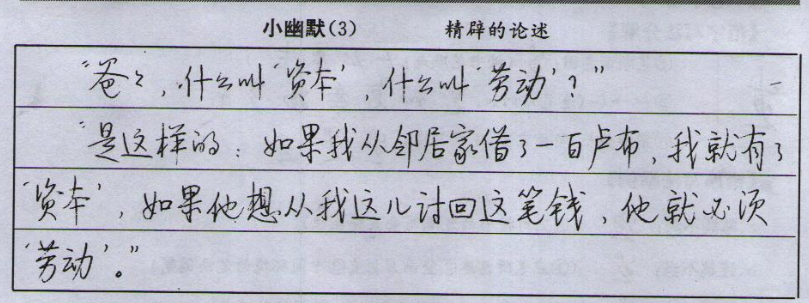 小幽默(3) 精辟的论述
“爸々,什么叫‘资本’ 什么叫‘劳动’?”
“是这样的:如果我从邻居家借了一百卢布,我就有了
‘资本’,如果他想从我这儿讨回这笔钱,他就必须
‘劳动’。”